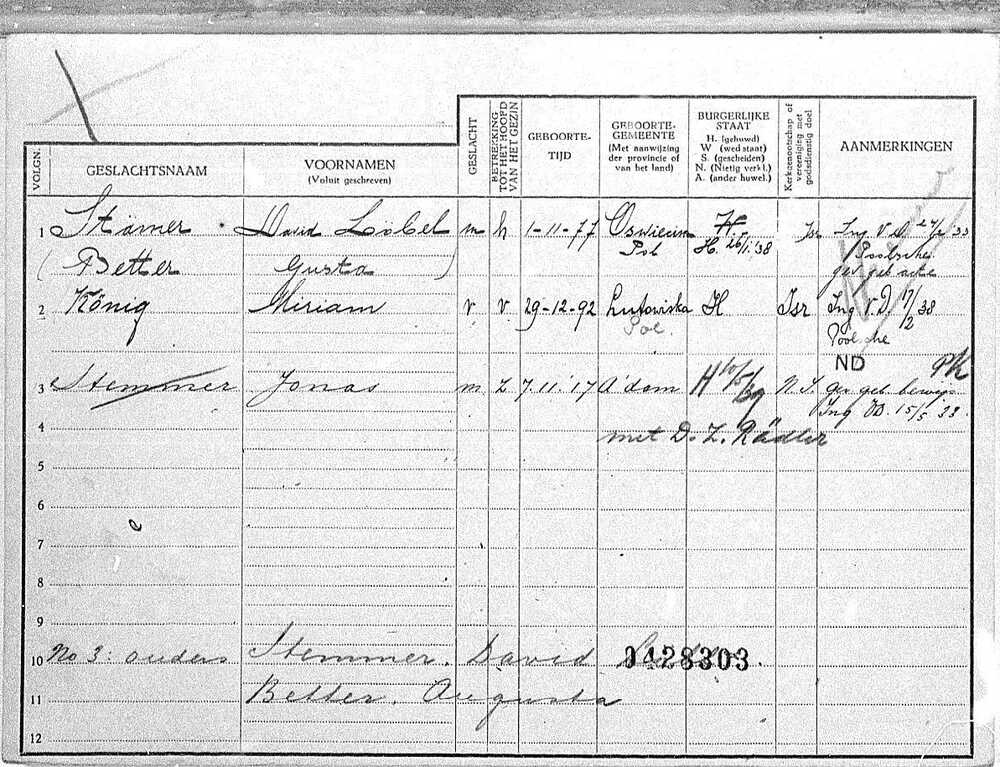 VOLGN.
GESLACHTSNAAM
VOORNAMEN
(Voluit geschreven)
GESLACHT
BETREKKING
TOT HET HOOFD
VAN HET GEZIN
GEBOORTE-
TIJD
GEBOORTE-
GEMEENTE
(Met aanwijzing
der provincie of
van het land)
BURGERLIJKE
STAAT
H. (gehuwd)
W (wed staat)
S. (gescheiden)
N. (Nietig verkl.)
A. (ander huwel.)
Kerkgenootschap of
vereeniging met
godsdienstig doel
AANMERKINGEN
1 Stämer David Löbel m h 1-11-77 Oswiecim H. Isr Ing V.D. 33
Pol H. 26/1 '38 Poolsche
( Better Gusta ) gew geb acte
2 König Miriam v v. 29-12-92 Lutowiska H Isr Ing V.D. 17/2 38
Pol Poolsche
ND PK
3 Stemmer Jonas m z 7.11.'17 A'dam H 10/5/39 N.I. gew geb bewijs
Ing VD. 15/5 33
4 met D. Z. Rädler
5
6
7
8
9
10 No 3: ouders Stemmer. David 0428303
11 Better. Augusta
12